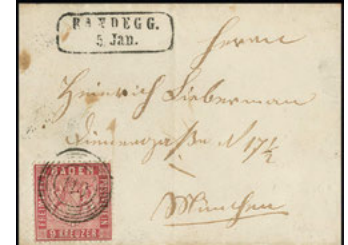 RANDEGG.
5 Jan.
Herrn
Heinrich Lieberman
N 17½
München
BADEN
9 KREUZER